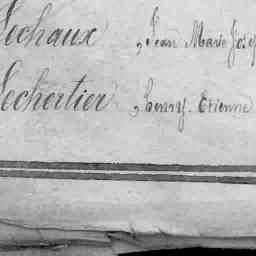 Lechaux , Jean Marie Josep
Lechertier , henry. Etienne